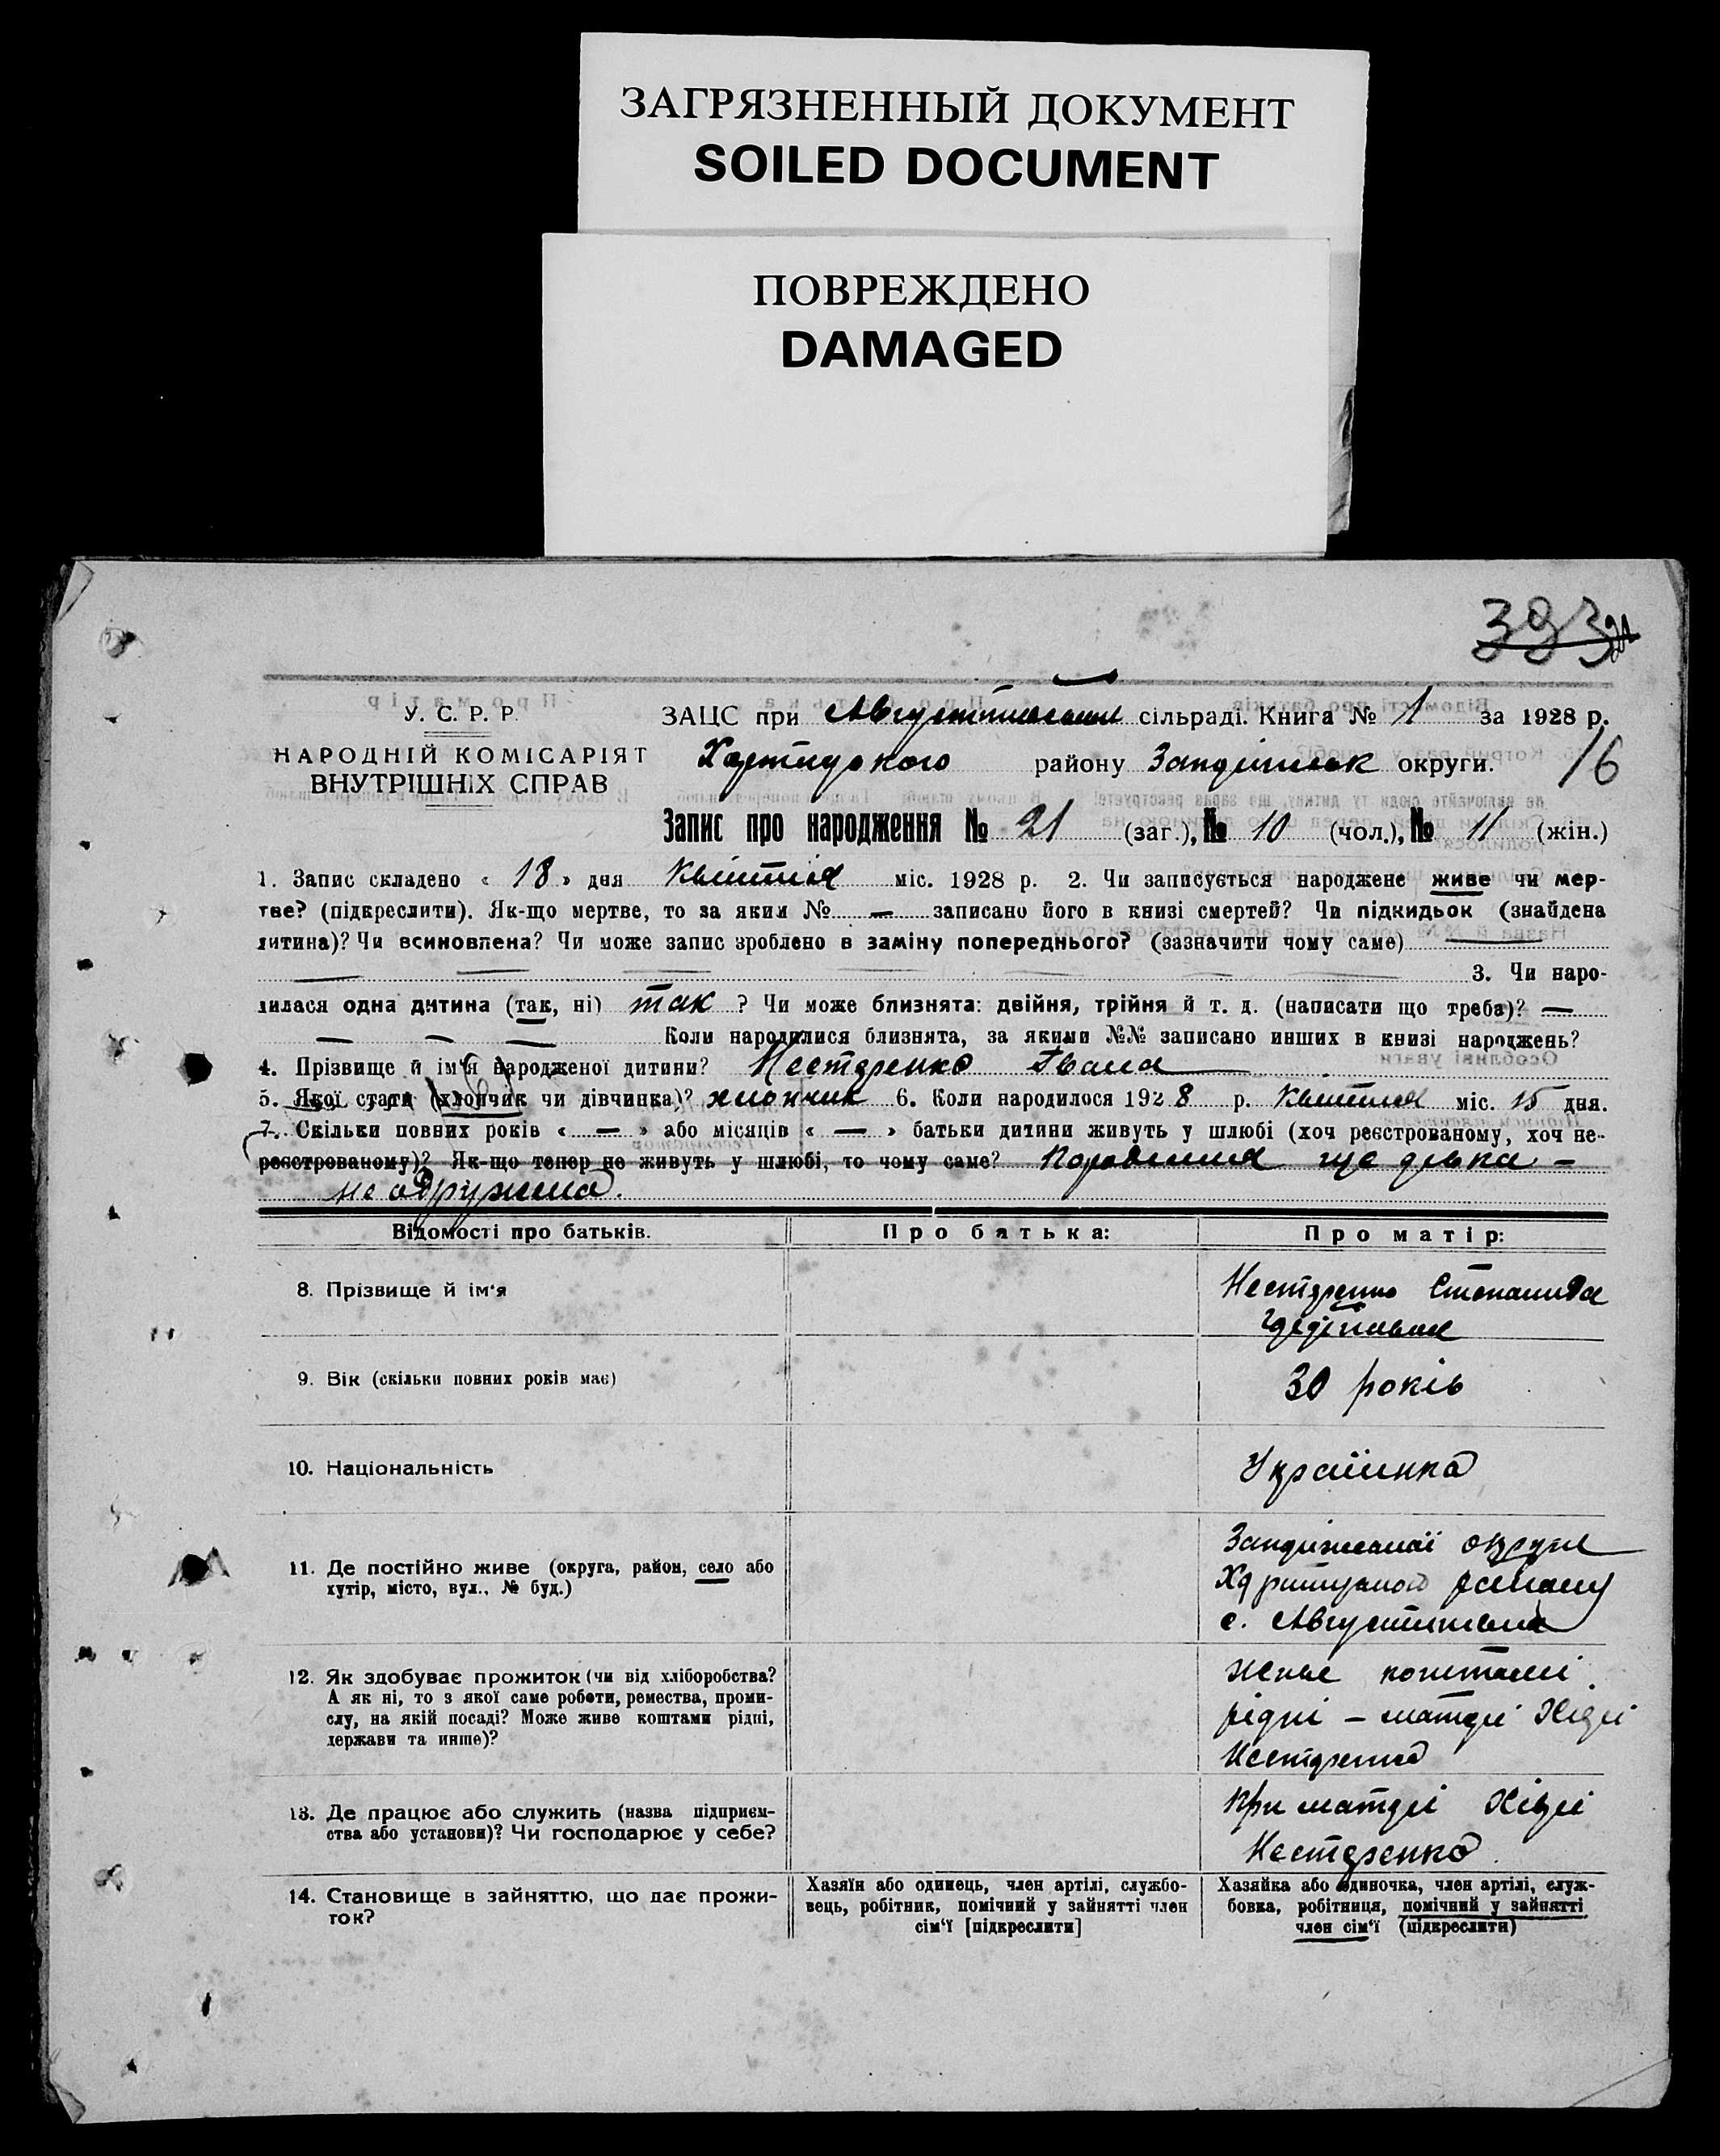 ЗАГРЯЗНЕННЫЙ ДОКУМЕНТ
SOILED DOCUMENT
ПОВРЕЖДЕНО
DAMAGED
393
У. С. Р. Р.
НАРОДНІЙ КОМІСАРІЯТ
ВНУТРІШНІХ СПРАВ
ЗАЦС при сільраді. Книга № 1 за 1928 р.
району округи. 16
Запис про народження № 21 (заг.), № 10 (чол.), № 11 (жін.)
1. Запис складено « 18 » дня Квітня міс. 1928 р. 2. Чи записується народжене живе чи мер-
тве? (підкреслити). Як-що мертве, то за яким № — записано його в книзі смертей? Чи підкидьок (знайдена
дитина)? Чи всиновлена? Чи може запис зроблено в заміну попереднього? (зазначити чому саме) —
3. Чи наро-
дилася одна дитина (так, ні) так ? Чи може близнята: двійня, трійня й т. д. (написати що треба)? —
— — — Коли народилися близнята, за якими №№ записано инших в книзі народжень?
4. Прізвище й ім'я народженої дитини? Нестеренко Івана
5. Якої стати (хлопчик чи дівчинка)? хлопчик 6. Коли народилося 1928 р. Квітня міс. 15 дня.
7. Скільки повних років « — » або місяців « — » батьки дитини живуть у шлюбі (хоч реєстрованому, хоч не-
реєстрованому)? Як-що тепер не живуть у шлюбі, то чому саме? ще дівка –
не одружена.
Відомості про батьків. Про батька: Про матір:
8. Прізвище й ім'я
Нестеренко Степанида
9. Вік (скільки повних років має)
30 років
10. Національність
Українка
11. Де постійно живе (округа, район, село або
хутір, місто, вул., № буд.)
округи
району
с. Августинівка
12. Як здобуває прожиток (чи від хліборобства?
А як ні, то з якої саме роботи, ремества, проми-
слу, на якій посаді? Може живе коштами рідні,
держави та инше)?
живе коштами
рідні – матері
Нестеренко
13. Де працює або служить (назва підприєм-
ства або установи)? Чи господарює у себе?
При матері
Нестеренко
14. Становище в зайняттю, що дає прожи-
ток?
Хазяїн або одинець, член артілі, службо-
вець, робітник, помічний у зайнятті член
сім'ї [підкреслити]
Хазяйка або одиночка, член артілі, служ-
бовка, робітниця, помічний у зайнятті
член сім'ї (підкреслити)